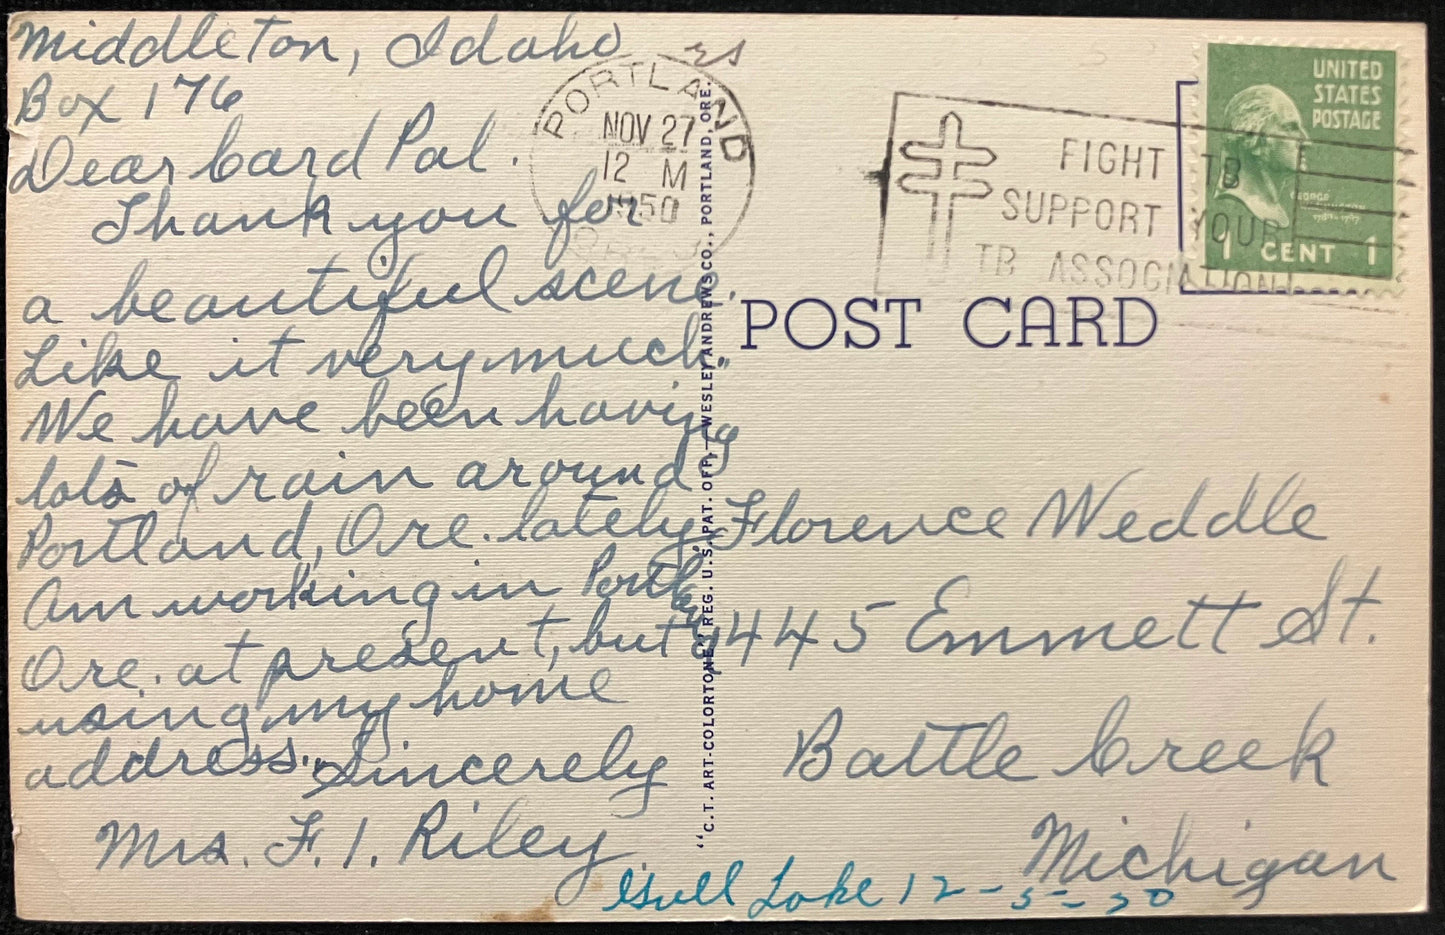 Middleton, Idaho
Box 176
Dear Card Pal.
Thank you for
a beautiful scene.
Like it very much.
We have been having
lots of rain around
Portland, Ore. lately,
Am working in Portland,
Ore. at present, but
using my home
address. Sincerely
Mrs. F. I. Riley
PORTLAND
NOV 27
12 M
1950
FIGHT TB
SUPPORT YOUR
TB ASSOCIATION!
UNITED
STATES
POSTAGE
GEORGE
WASHINGTON
1789-1797
1 CENT 1
POST CARD
"C.T. ART-COLORTONE" REG. U.S. PAT. OFF.—WESLEY ANDREWS CO., PORTLAND, ORE.
Florence Weddle
445 Emmett St.
Battle Creek
Michigan
Gull Lake 12-5-50